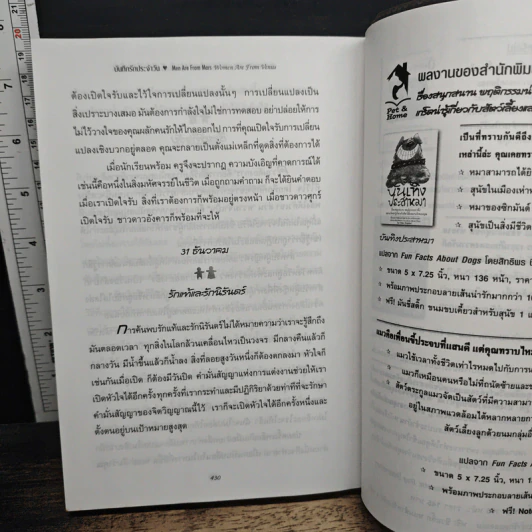 บันทึกรักประจำวัน ♥ Men Are From Mars, Women Are From Venus
ต้องเปิดใจรับและไว้ใจการเปลี่ยนแปลงนั้นๆ การเปลี่ยนแปลงเป็น
สิ่งเปราะบางเสมอ มันต้องการกำลังใจไม่ใช่การทดสอบ อย่าปล่อยให้การ
ไม่ไว้วางใจของคุณผลักคนรักให้ไกลออกไป การที่คุณเปิดใจรับการเปลี่ยน
แปลงเชิงบวกอยู่ตลอด คุณจะกลายเป็นดั่งแม่เหล็กที่ดูดสิ่งที่ต้องการได้
เมื่อนักเรียนพร้อม ครูจึงจะปรากฏ ความบังเอิญที่คาดการณ์ได้
เช่นนี้คือหนึ่งในสิ่งมหัศจรรย์ในชีวิต เมื่อถูกถามคำถาม ก็จะได้ยินคำตอบ
เมื่อเราเปิดใจรับ สิ่งที่เราต้องการก็พร้อมอยู่ตรงหน้า เมื่อชาวดาวศุกร์
เปิดใจรับ ชาวดาวอังคารก็พร้อมที่จะให้
31 ธันวาคม
รักแท้และรักนิรันดร์
การค้นพบรักแท้และรักนิรันดร์ไม่ได้หมายความว่าเราจะรู้สึกถึง
มันตลอดเวลา ทุกสิ่งในโลกล้วนเคลื่อนไหวเป็นวงจร มีกลางคืนแล้วก็
กลางวัน มีน้ำขึ้นแล้วก็น้ำลง สิ่งที่ลอยสูงวันหนึ่งก็ต้องตกลงมา หัวใจก็
เช่นกันเมื่อเปิด ก็ต้องมีวันปิด คำมั่นสัญญาแห่งการแต่งงานช่วยให้เรา
เปิดหัวใจได้อีกครั้งทุกครั้งที่เรากระทำและมีปฏิกิริยาด้วยท่าทีที่จะรักษา
คำมั่นสัญญาของจิตวิญญาณนี้ไว้ เราก็จะเปิดหัวใจได้อีกครั้งหนึ่งและ
ตั้งตนอยู่บนเป้าหมายสูงสุด
430
Pet &
Home
ผลงานของสำนักพิม
เรื่องสนุกสนาน พฤติกรรมน่
เกร็ดน่ารู้เกี่ยวกับสัตว์เลี้ยงแส
เป็นที่ทราบกันดีถึง
เหล่านี้ล่ะ คุณเคยทรา
☆ หมาสามารถได้ยิ
☆ สุนัขในเมืองเห่าร
☆ หมาของซิกมันด์
☆ สุนัขเป็นสิ่งมีชีวิต
บันเทิงประสาหมา
บันเทิงประสาหมา
แปลจาก Fun Facts About Dogs โดยสิทธิพร
☆ ขนาด 5 x 7.25 นิ้ว, หนา 136 หน้า, ราคา
☆ พร้อมภาพประกอบลายเส้นน่ารักมากกว่า
☆ ฟรี! มันชี่สติ๊ก ขนมขบเคี้ยวสำหรับสุนัข 1
แมวคือเพื่อนขี้ประจบที่แสนดี แต่คุณทราบไหม
☆ แมวใช้เวลาทั้งชีวิตเท่าไรหมดไปกับการ
☆ แมวก็เหมือนคนหรือไม่ที่ถนัดซ้ายและข
☆ สัตว์ตระกูลแมวจัดเป็นสัตว์ที่มีความสามา
อยู่ในสภาพแวดล้อมได้หลากหลายกา
สัตว์เลี้ยงลูกด้วยนมกลุ่มอื่
แปลจาก Fun Facts
☆ ขนาด 5 x 7.25 นิ้ว, หนา
☆ พร้อมภาพประกอบลายเส้น
☆ ฟรี!